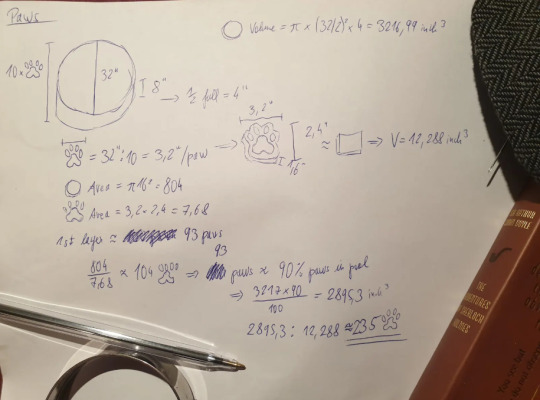 Paws
Volume = π × (32/2)² × 4 = 3216,99 inch³
10 ×
32"
8"
→ ½ full = 4"
3,2"
2,4"
1,6"
= 32" : 10 = 3,2"/paw
≈ ⇒ V = 12,288 inch³
Area = π16² = 804
Area = 3,2 · 2,4 = 7,68
1st layer ≈ 93 paws
93
804/7,68 ≈ 104 ⇒ paws ≈ 90% paws in pool
⇒ 3217 × 90 / 100 = 2895,3 inch³
2895,3 : 12,288 ≈ 235
THE
ADVENTURES
OF SHERLOCK
HOLMES